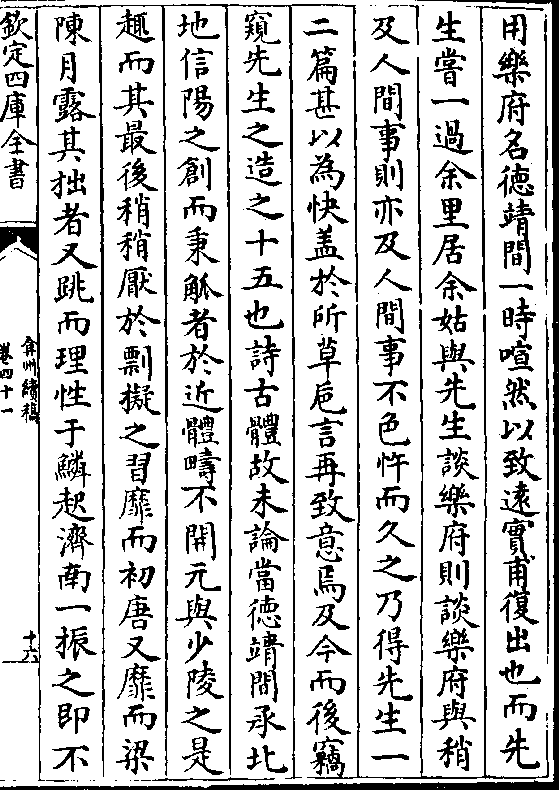 用樂府名德靖間一時喧然以致遠實甫復出也而先
生嘗一過余里居余姑與先生談樂府則談樂府與稍
及人間事則亦及人間事不色忤而久之乃得先生一
二篇甚以為快盖於所草巵言再致意焉及今而後竊
窺先生之造之十五也詩古體故未論當德靖間承北
地信陽之創而秉觚者於近體疇不開元與少陵之是
趣而其最後稍稍厭於剽擬之習靡而初唐又靡而梁
陳月露其拙者又跳而理性于鱗起濟南一振之即不
欽定四庫全書
弇州續稿
卷四十一
十六